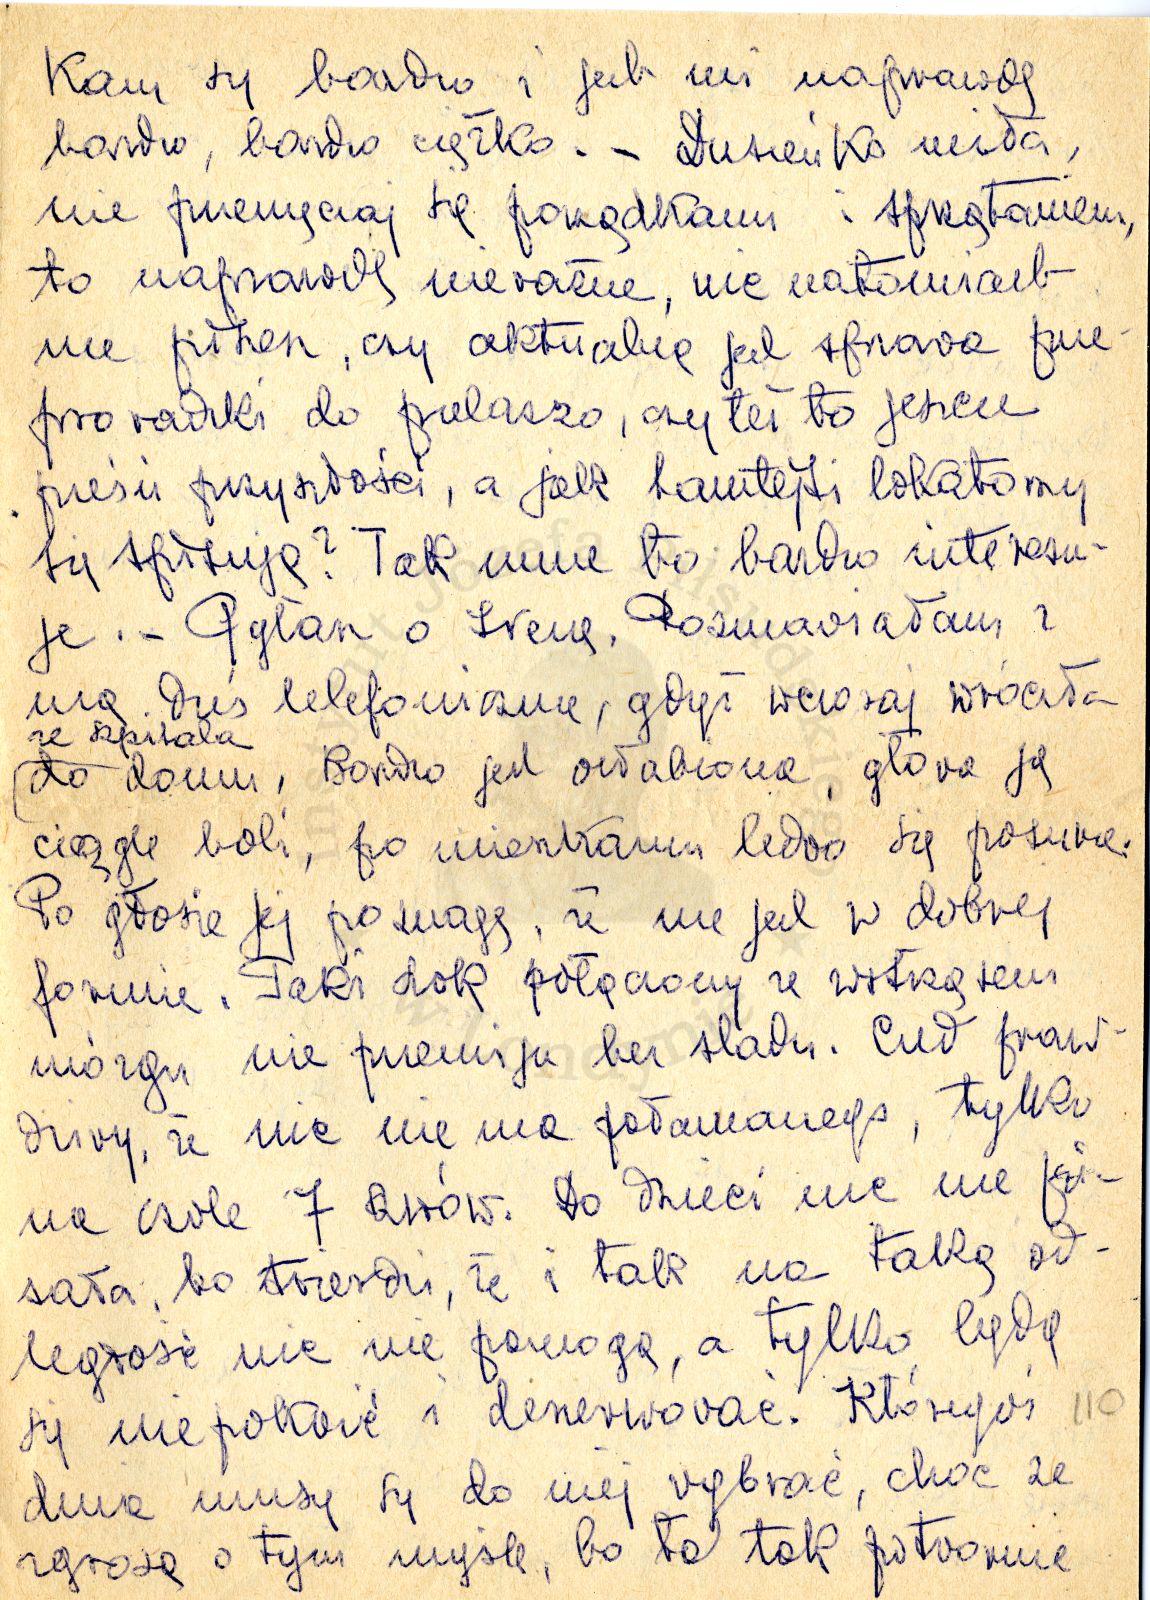 kam się bardzo i jest mi naprawdę
bardzo, bardzo ciężko. – Dusieńko miła,
nie przemęczaj się porządkami i sprzątaniem,
to naprawdę nieważne, nic natomiast
nie piszesz, czy aktualną jest sprawa prze-
prowadzki do pulaszo, czy też to jeszcze
pieśń przyszłości, a jak tamtejsi lokatorzy
się spisują? Tak mnie to bardzo interesu-
je. – Pytasz o Irenę. Rozmawiałam z
nią dziś telefonicznie, gdyż wczoraj wróciła
ze szpitala
do domu, Bardzo jest osłabiona, głowa ją
ciągle boli, po mieszkaniu ledwo się posuwa.
Po głosie jej poznaję, że nie jest w dobrej
formie. Taki szok połączony ze wstrząsem
mózgu nie przemija bez śladu. Cud praw-
dziwy, że nic nie ma połamanego, tylko
na czole 7 szwów. Do dzieci nic nie pi-
sała, bo twierdzi, że i tak na taką od-
ległość nic nie pomogą, a tylko będą
się niepokoić i denerwować. Któregoś 110
dnia muszę się do niej wybrać, choć ze
zgrozą o tym myślę, bo to tak potwornie